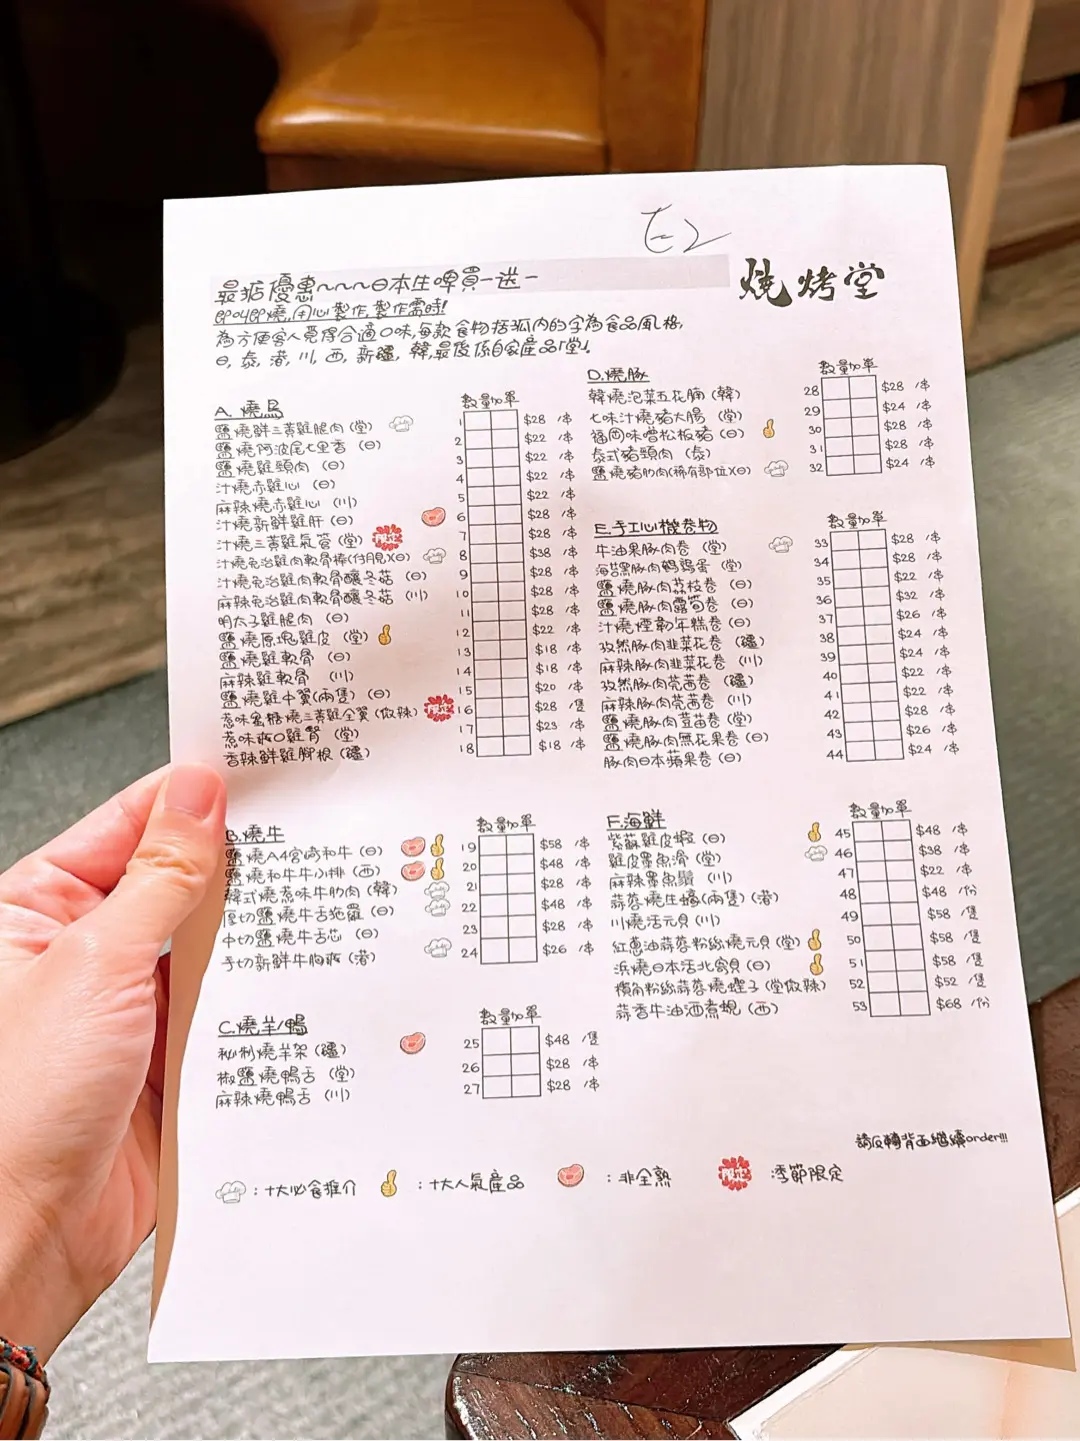 E2
最近優惠~~~日本生啤買一送一
燒烤堂
即叫即燒,用心製作,製作需時!
為方便客人覓得合適口味,每款食物括弧內的字為食品風格,
日,泰,港,川,西,新疆,韓,最後係自家產品「堂」。
A. 燒鳥
數量加單
鹽燒鮮三黃雞腿肉(堂) 1 $28 /串
鹽燒阿波尾七里香 (日) 2 $22 /串
鹽燒雞頸肉 (日) 3 $22 /串
汁燒赤雞心 (日) 4 $22 /串
麻辣燒赤雞心 (川) 5 $22 /串
汁燒新鮮雞肝 (日) 6 $28 /串
汁燒三黃雞氣管 (堂) 限定 7 $28 /串
汁燒免治雞肉軟骨棒(付月見)(日) 8 $38 /串
汁燒免治雞肉軟骨釀冬菇 (日) 9 $28 /串
麻辣免治雞肉軟骨釀冬菇 (川) 10 $28 /串
明太子雞腿肉 (日) 11 $28 /串
鹽燒原塊雞皮 (堂) 12 $22 /串
鹽燒雞軟骨 (日) 13 $18 /串
麻辣雞軟骨 (川) 14 $18 /串
鹽燒雞中翼(兩隻) (日) 15 $20 /串
惹味蜜糖燒三黃雞全翼 (微辣) 限定 16 $28 /隻
惹味爽口雞腎 (堂) 17 $23 /串
香辣鮮雞腳根 (疆) 18 $18 /串
B. 燒牛
數量加單
鹽燒A4宮崎和牛 (日) 19 $58 /串
鹽燒和牛牛小排 (西) 20 $48 /串
韓式燒惹味牛肋肉 (韓) 21 $28 /串
厚切鹽燒牛舌拖羅 (日) 22 $48 /串
中切鹽燒牛舌芯 (日) 23 $28 /串
手切新鮮牛胸爽 (港) 24 $26 /串
C. 燒羊/鴨
數量加單
秘制燒羊架 (疆) 25 $48 /隻
椒鹽燒鴨舌 (堂) 26 $28 /串
麻辣燒鴨舌 (川) 27 $28 /串
D. 燒豚
數量加單
韓燒泡菜五花腩 (韓) 28 $28 /串
七味汁燒豬大腸 (堂) 29 $24 /串
福岡味噌松板豬 (日) 30 $28 /串
泰式豬頸肉 (泰) 31 $28 /串
鹽燒豬肋肉(稀有部位)(日) 32 $24 /串
E. 手工心機卷物
數量加單
牛油果豚肉卷 (堂) 33 $28 /串
海苔黑豚肉鵪鶉蛋 (堂) 34 $28 /串
鹽燒豚肉荔枝卷 (日) 35 $22 /串
鹽燒豚肉露筍卷 (日) 36 $32 /串
汁燒煙韌年糕卷 (日) 37 $26 /串
孜然豚肉韭菜花卷 (疆) 38 $24 /串
麻辣豚肉韭菜花卷 (川) 39 $24 /串
孜然豚肉芫茜卷 (疆) 40 $22 /串
麻辣豚肉芫茜卷 (川) 41 $22 /串
鹽燒豚肉荳苗卷 (堂) 42 $28 /串
鹽燒豚肉無花果卷 (日) 43 $26 /串
豚肉日本蘋果卷 (日) 44 $24 /串
F. 海鮮
數量加單
紫蘇雞皮蝦 (日) 45 $48 /串
雞皮墨魚滑 (堂) 46 $38 /串
麻辣墨魚鬚 (川) 47 $22 /串
蒜蓉燒生蠔(兩隻) (港) 48 $48 /份
川燒活元貝 (川) 49 $58 /隻
紅蔥油蒜蓉粉絲燒元貝 (堂) 50 $58 /隻
浜燒日本活北寄貝 (日) 51 $58 /隻
橫角粉絲蒜蓉燒蟶子 (堂微辣) 52 $52 /隻
蒜香牛油酒煮蜆 (西) 53 $68 /份
請反轉背面繼續order!!!
:十大必食推介 :十大人氣產品 :非全熟 限定 :季節限定